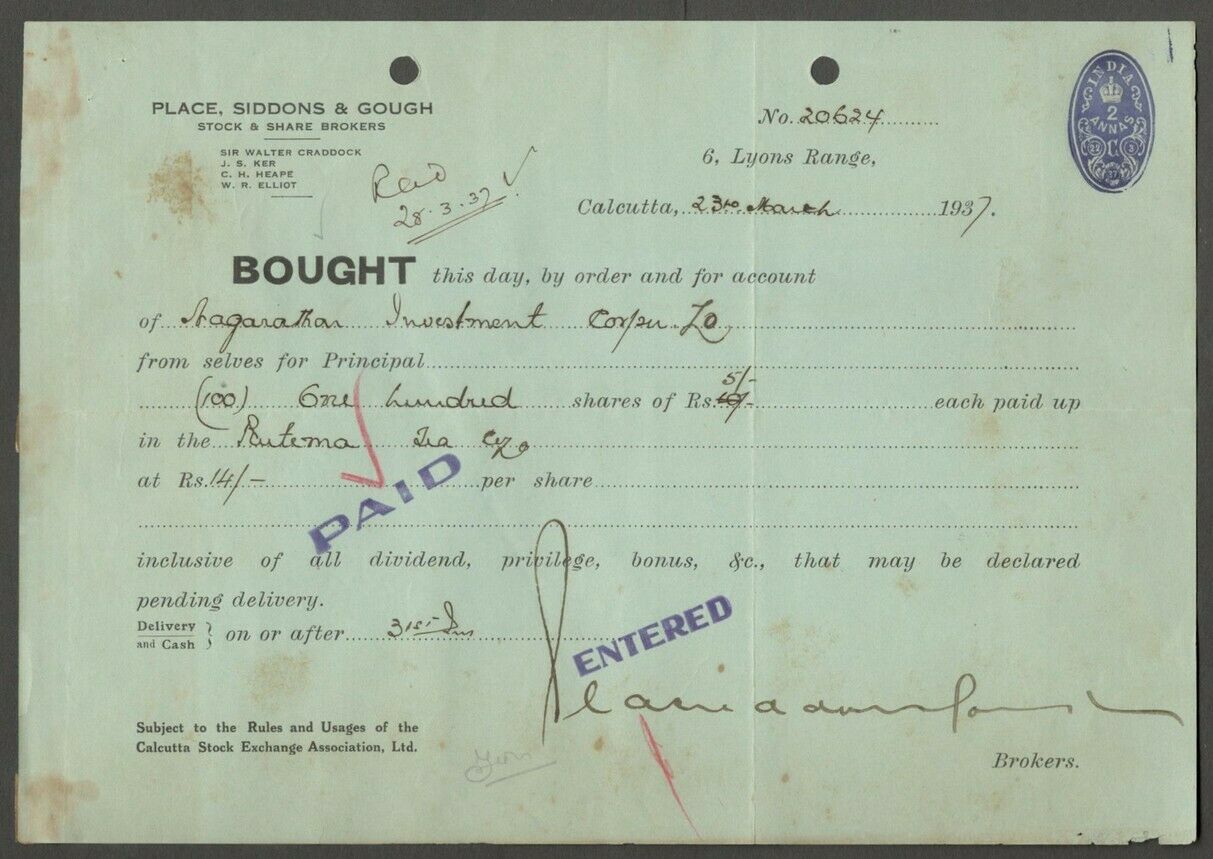 PLACE, SIDDONS & GOUGH
STOCK & SHARE BROKERS
SIR WALTER CRADDOCK
J. S. KER
C. H. HEAPE
W. R. ELLIOT
28.3.37
No. 20624
6, Lyons Range,
Calcutta, 23rd March 1937.
INDIA
2
ANNAS
22 C 3
37
BOUGHT this day, by order and for account
of Nagarathar Investment Corpn Ld
from selves for Principal
5/-
(100) One hundred shares of Rs. 10/- each paid up
in the Rutema Tea Co
at Rs. 14/- per share
PAID
inclusive of all dividend, privilege, bonus, &c., that may be declared
pending delivery.
Delivery and Cash } on or after 31st Ins
ENTERED
Subject to the Rules and Usages of the
Calcutta Stock Exchange Association, Ltd.
Brokers.